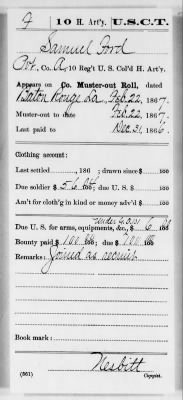 F | 10 H. Art'y. | U.S.C.T.
Samuel Ford
Pvt., Co. A, 10 Reg't U. S. Col'd H. Art'y.
Appears on Co. Muster-out Roll, dated
Baton Rouge La, Feb. 22, 1867.
Muster-out to date Feb. 22, 1867.
Last paid to Dec. 31, 1866.
Clothing account:
Last settled , 186 ; drawn since $ 100
Due soldier $ 56 100; due U. S. $ 100
Am't for cloth'g in kind or money adv'd $ 100
under G.O. 101
Due U. S. for arms, equipments, &c., $ 6 100
Bounty paid $ 100 100; due $ 100 100
Remarks: Joined as recruit
Book mark:
Nesbitt
(861) Copyist.